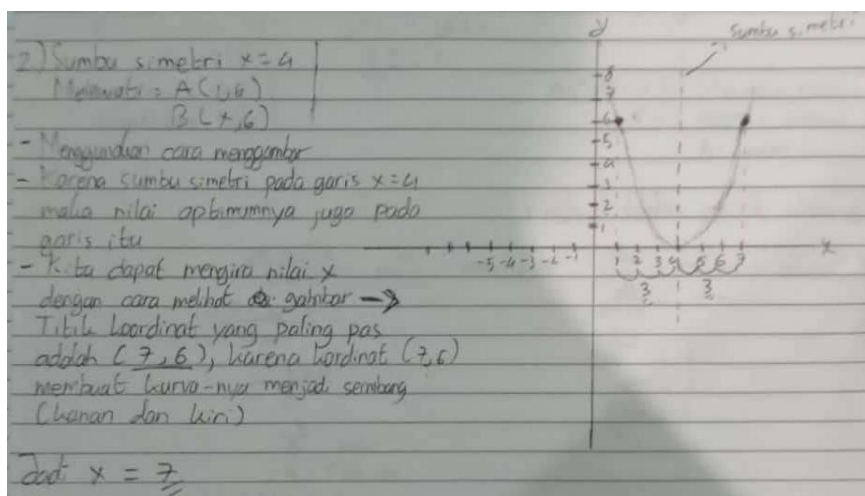 2) Sumbu simetri x = 4
Melewati = A (1,6)
B (x,6)
- Menggunakan cara menggambar
- Karena sumbu simetri pada garis x = 4
maka nilai optimumnya juga pada
garis itu
- Kita dapat mengira nilai x
dengan cara melihat gambar →
Titik koordinat yang paling pas
adalah (7,6), karena kordinat (7,6)
membuat kurva-nya menjadi seimbang
(kanan dan kiri)
Jadi x = 7
y
Sumbu simetri
8
7
6
5
4
3
2
1
-5 -4 -3 -2 -1 1 2 3 4 5 6 7 x
3 3